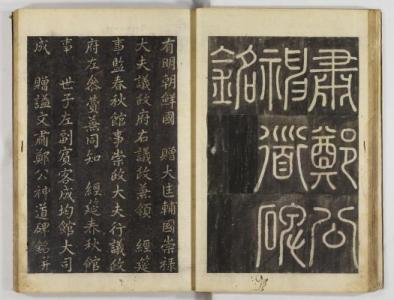 肅鄭公
神道碑
銘
有明朝鮮國 贈大匡輔國崇祿
大夫議政府右議政兼領 經筵
事監春秋館事崇政大夫行議政
府左叅贊兼同知 經筵春秋館
事 世子左副賓客成均館大司
成 贈諡文肅鄭公神道碑銘并